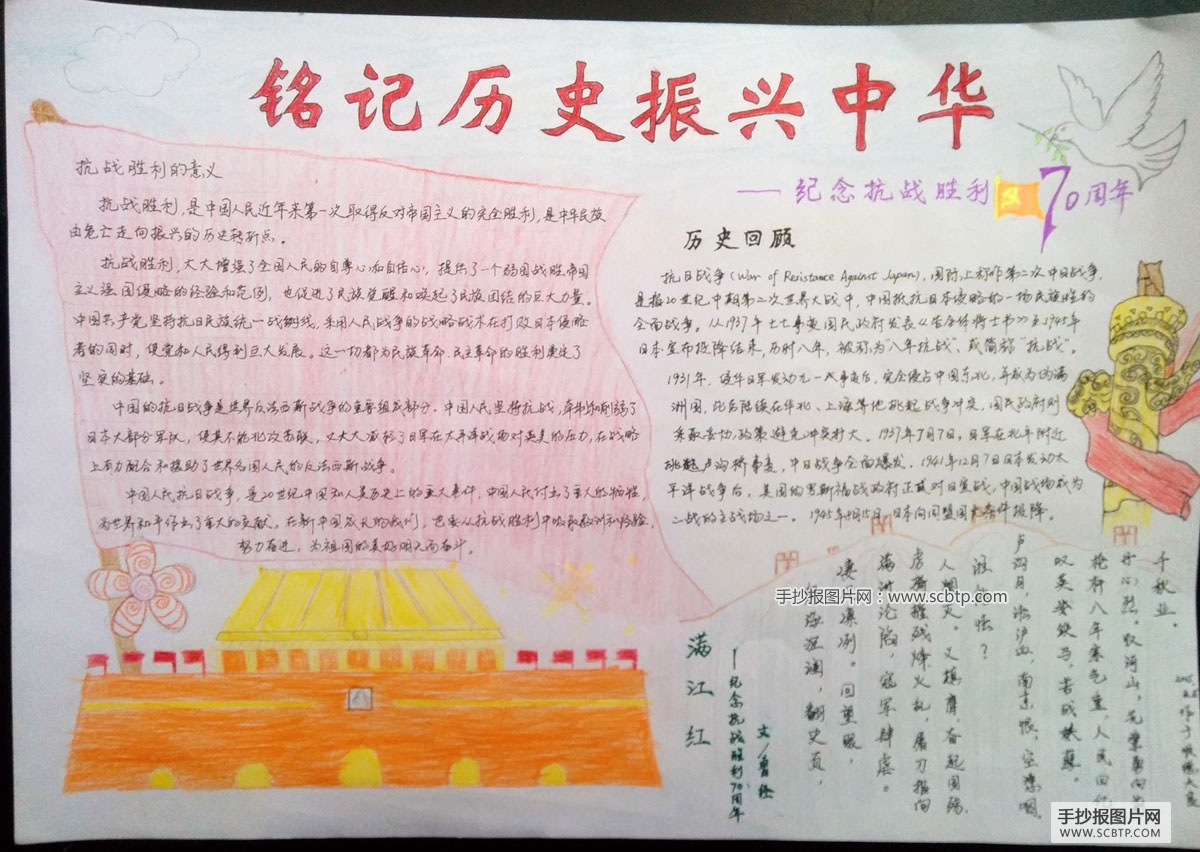 铭记历史振兴中华
——纪念抗战胜利70周年
抗战胜利的意义
抗战胜利,是中国人民近年来第一次取得反对帝国主义的完全胜利,是中华民族
由危亡走向振兴的历史转折点。
抗战胜利,大大增强了全国人民的自尊心和自信心,提供了一个弱国战胜帝国
主义强国侵略的经验和范例,也促进了民族觉醒和唤起了民族团结的巨大力量。
中国共产党坚持抗日民族统一战线,采用人民战争的战略战术在打败日本侵略
者的同时,使党和人民得到巨大发展。这一切都为民族革命、民主革命的胜利奠定了
坚实的基础。
中国的抗日战争是世界反法西斯战争的重要组成部分。中国人民坚持抗战,牵制和削弱了
日本大部分军队,使其不能北攻苏联,又大大减轻了日军在太平洋战场对英美的压力,在战略
上有力配合和援助了世界各国人民的反法西斯战争。
中国人民抗日战争,是20世纪中国和人类历史上的重大事件,中国人民付出了重大的牺牲,
为世界和平作出了重大的贡献。在新中国成长的我们,也要从抗战胜利中吸取教训和经验,
努力奋进,为祖国的美好明天而奋斗。
历史回顾
抗日战争(War of Resistance Against Japan),国际上称作第二次中日战争,
是指20世纪中期第二次世界大战中,中国抵抗日本侵略的一场民族性的
全面战争。从1937年七七事变国民政府发表《告全体将士书》至1945年
日本宣布投降结束,历时八年,被称为“八年抗战”、或简称“抗战”。
1931年,侵华日军发动九一八事变后,完全侵占中国东北,并成为伪满
洲国,此后陆续在华北、上海等地挑起战争冲突,国民政府则
采取妥协政策避免冲突扩大。1937年7月7日,日军在北平附近
挑起卢沟桥事变,中日战争全面爆发。1941年12月7日日本发动太
平洋战争后,美国的罗斯福政府正式对日宣战,中国战场成为
二战的主战场之一。1945年8月15日,日本向同盟国无条件投降。
满江红
—纪念抗战胜利70周年
文/曾经
狂澜,翻史页,
凛冽。回望眼,
满洲沦陷,寇军肆虐。
烽火乱,屠刀指向
人烟灭。又模糊,奋起国殇,
卢沟月,淞沪血,南京恨,
叹英雄铁马,苦战
枪杆八年寒
收河山,
千秋业。
手抄报图片网:www.scbtp.com
手抄报图片网
WWW.SCBTP.COM